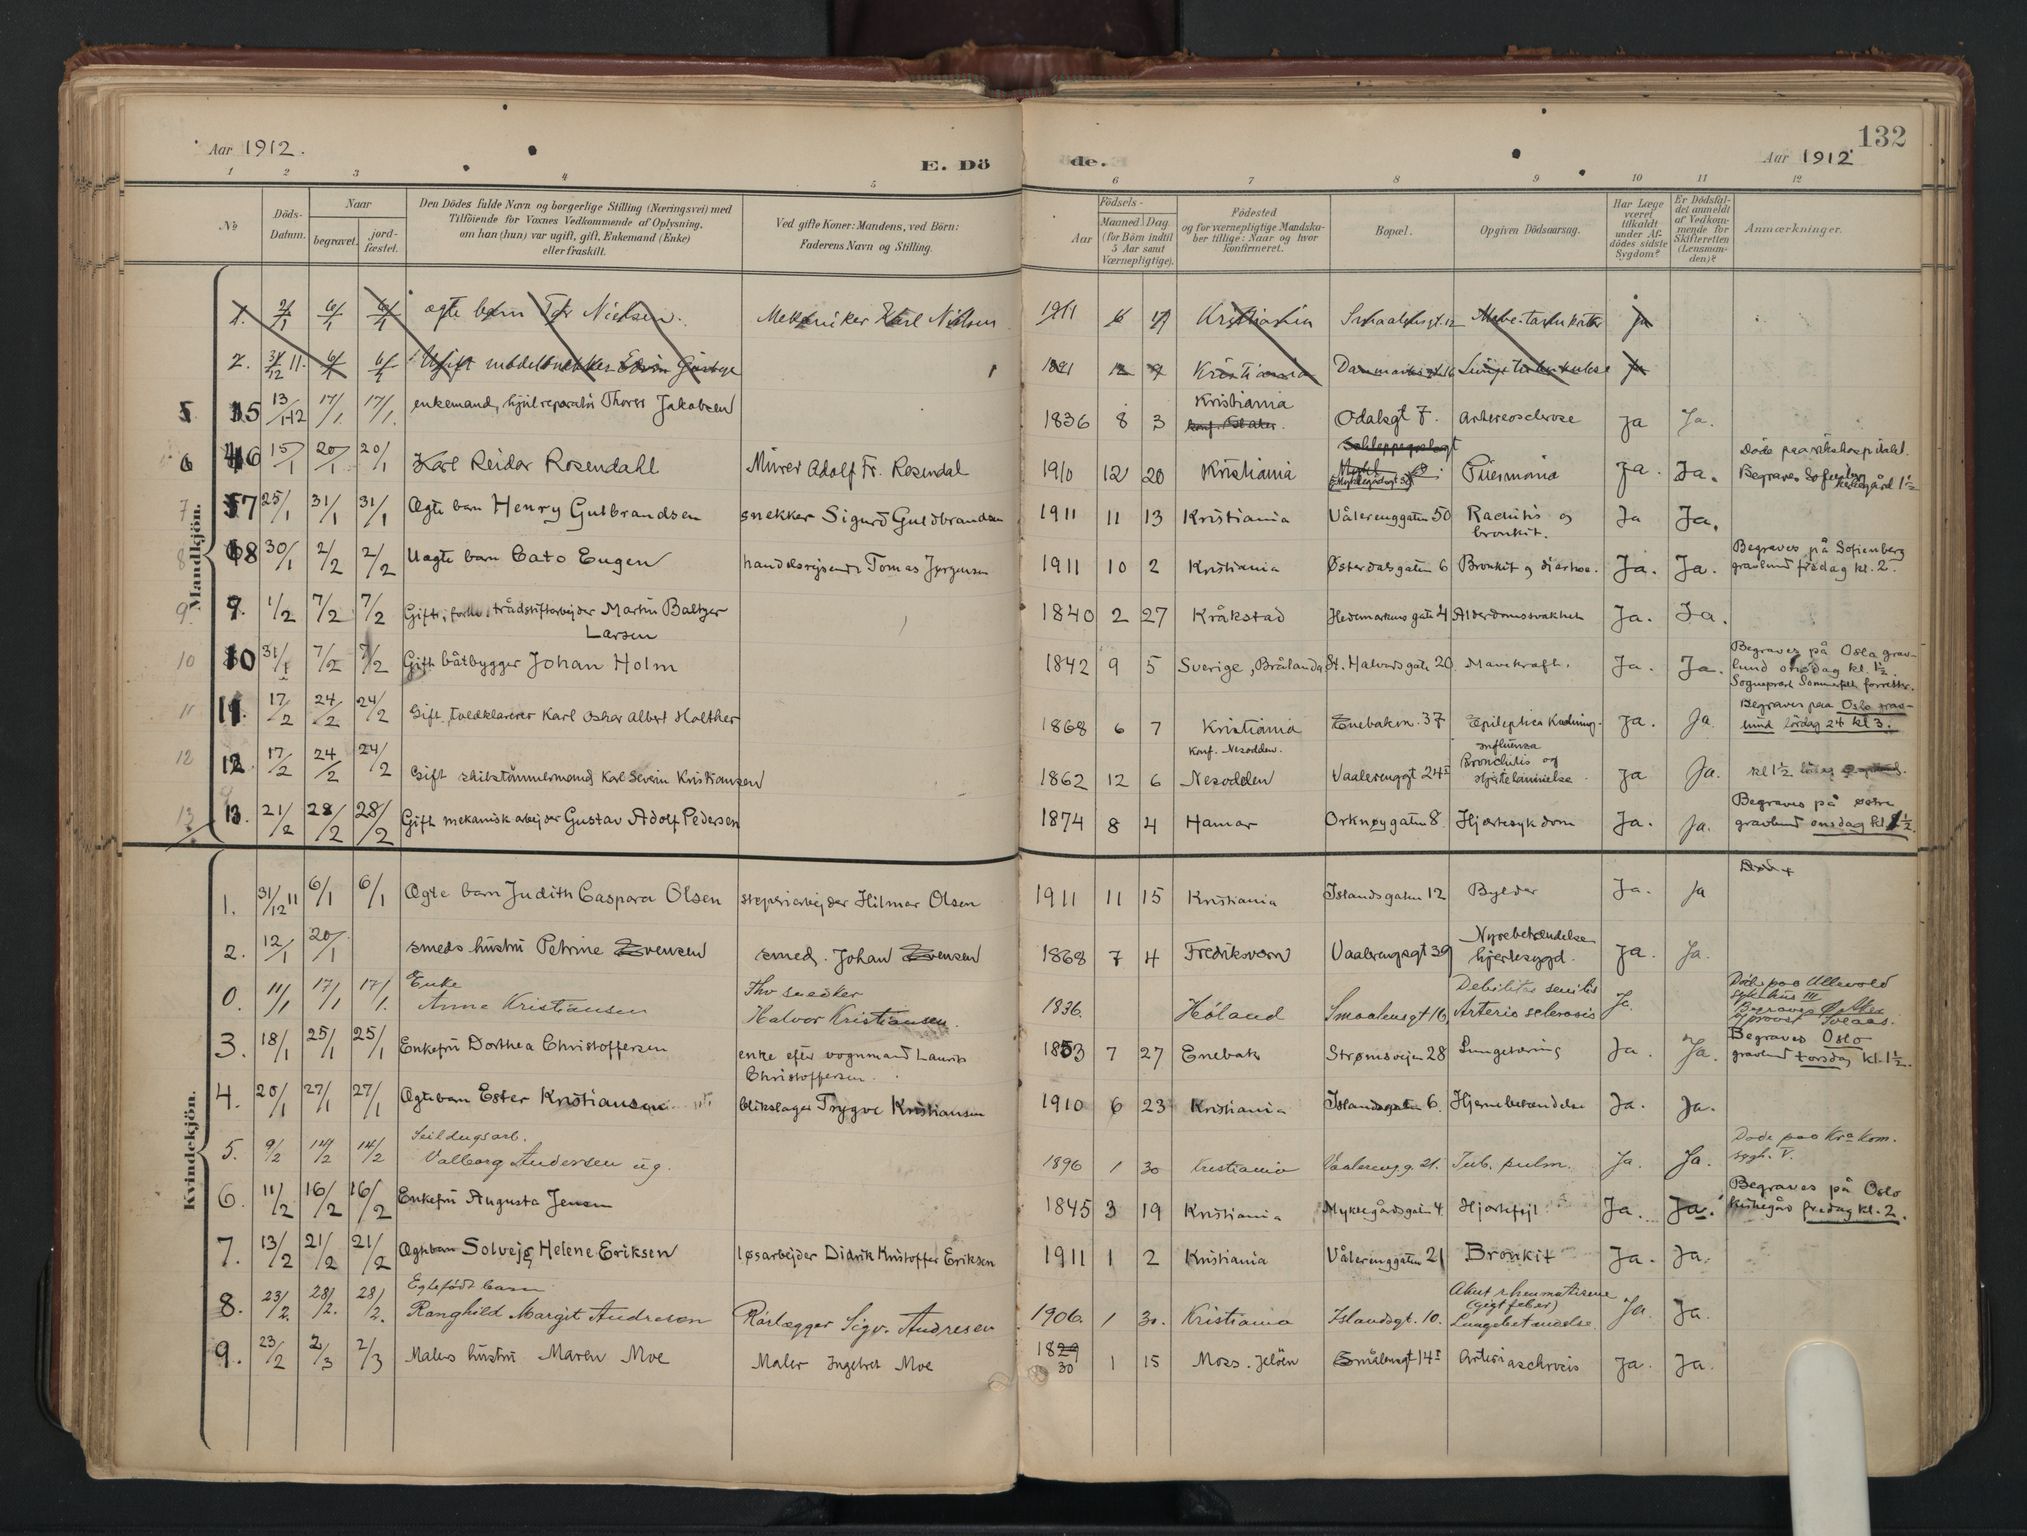 132
Aar 1912.
E. Döde.
Aar 1912
1 2 3 4 5 6 7 8 9 10 11 12
No
Döds-Datum.
Naar
begravet.
jord-fæstet.
Den Dödes fulde Navn og borgerlige Stilling (Næringsvei) med
Tilföiende for Voxnes Vedkommende af Oplysning,
om han (hun) var ugift, gift, Enkemand (Enke)
eller fraskilt.
Ved gifte Koner: Mandens, ved Börn:
Faderens Navn og Stilling.
Födsels-
Aar
Maaned
Dag.
(for Börn indtil
5 Aar samt
Værnepligtige).
Födested
og for værnepligtige Mandska-
ber tillige: Naar og hvor
konfirmeret.
Bopæl.
Opgiven Dödsaarsag.
Har Læge
været
tilkaldt
under Af-
dödes sidste
Sygdom?
Er Dödsfal-
det anmeldt
af Vedkom-
mende for
Skifteretten
(Lensman-
den)?
Anmærkninger.
Mandkjön.
1. 2/1 6/1 6/1 ægte barn Nielsen. Mekaniker Karl Nielsen 1911 6 Kristiania Smaalensgt. 12 Ja
2. 31/12 11. 6/1 6/1 Ugift modelsnekker Edvin 12 9 Kristiania Danmarksgt 16 Lungetuberkulose Ja
5 13/1-12 17/1 17/1. enkemand, hjulreparatör Thorer Jakobsen 1836 8 3 Kristiania Odalsgt 7. Arterosclerose Ja Ja.
6 15/1 20/1 20/1 Karl Reidar Rosendahl Murer Adolf Fr. Rosendal 1910 12 20 Kristiania Pnevmonia Ja. Ja. Döde paa rikshospitalet.
Begraves Sofienberg kirkegård 1½
7 25/1 31/1 31/1 Ægte barn Henry Gulbrandsen snekker Sigurd Guldbrandsen 1911 11 13 Kristiania Vålerenggaten 50 Rachitis og
bronkit. Ja Ja.
8 30/1 2/2 2/2 Uægte barn Cato Eugen handelsrejsende Tomas Jørgensen 1911 10 2 Kristiania Østerdalsgaten 6 Bronkit og diarhoe. Ja. Ja. Begraves på Sofienberg
gravlund fredag kl. 2.
9. 1/2 7/2 7/2 Gift, forhv. trådstiftarbejder Martin Baltzer
Larsen 1840 2 27 Kråkstad Hedemarkens gate 4 Alderdomssvakhet Ja. Ja.
10 31/1 7/2 7/2 Gift båtbygger Johan Holm 1842 9 5 Sverige, Brålanda St. Halvardsgate 20. Mavekræft. Ja. Ja. Begraves på Oslo grav-
lund onsdag kl. 1½
Sogneprest Sommerfelt forretter.
11 17/2 24/2 24/2 Gift toldklarerer Karl Oskar Albert Holther 1868 6 7 Kristiania Enebakvn. 37 Ja. Ja Begraves paa Oslo grav-
lund lördag 24 kl 3.
12 17/2 24/2 24/2 Gift skibstömmermand Karl Severin Kristiansen 1862 12 6 Konf. Nesodden.
Nesodden Vaalerenggt 24 I Influenza
Bronchitis og
Hjertelammelse Ja Ja. kl 1½
13. 21/2 28/2 28/2 Gift mekanisk arbejder Gustav Adolf Pedersen 1874 8 4 Hamar Orknøygaten 8. Hjertesykdom Ja. Ja. Begraves på østre
gravlund onsdag kl. 1½.
Kvindekjön.
1. 31/12 11 6/1 6/1 Ægte barn Judith Caspara Olsen støperiarbejder Hilmar Olsen 1911 11 15 Kristiania Islandsgaten 12 Bylder Ja. Ja
2. 12/1 20/1 smeds hustru Petrine smed. Johan 1868 7 4 Fredriksværn Vaalerengsgt 39 Nyrebetændelse
hjertesygd. Ja. Ja.
0. 11/1 17/1 17/1. Enke
Anne Kristiansen Fhv snedker
Halvor Kristiansen. 1836. Höland Smaalensgt 16, Debilitas senilis
Arterio sclerosis Ja. Döde paa Ullevold
sykehus III
Begraves Ø. Aker
3. 18/1 25/1 25/1 Enkefru Dorthea Christoffersen enke efter vognmand Laurits
Christoffersen. 1853 7 27 Enebak Strømsvejen 28 Lungetæring Ja. Ja. Begraves Oslo
gravlund torsdag kl. 1½.
4. 20/1 27/1 27/1 Ægte barn Ester Kristiansen blikslager Trygve Kristiansen 1910 6 23 Kristiania Islandsgaten 6. Hjernebetændelse Ja. Ja.
5. 9/2 14/2 14/2 Seildugsarb.
Valborg Andersen ug. 1896 1 30 Kristiania Vaalereng g. 21. Tub. pulm. Ja. Ja. Döde paa Kra kom.
sygh. V.
6. 11/2 16/2 16/2 Enkefru Augusta Jensen 1845 3 19 Kristiania Myklegårdsgaten 4. Hjertefejl Ja. Ja. Begraves på Oslo
kirkegård fredag kl. 2.
7. 13/2 21/2 21/2 Ægte barn Solvejg Helene Eriksen løsarbejder Didrik Kristoffer Eriksen 1911 1 2 Kristiania Vålerenggaten 21 Bronkit Ja. Ja.
8. 23/2. 28/2. 28/2. Egtefödt barn
Ranghild Margit Andresen Rörlægger Sigv. Andresen 1906. 1 30. Kristiania Islandsgt. 10. Akut rheumatisme
(gigtfeber)
Lungebetændelse. Ja. Ja.
9. 23/2 2/3 2/3 Malers hustru Maren Moe Maler Ingebret Moe 1829
30 1 15 Moss. Jelöen Smålensgt 14 I Ja. Ja.